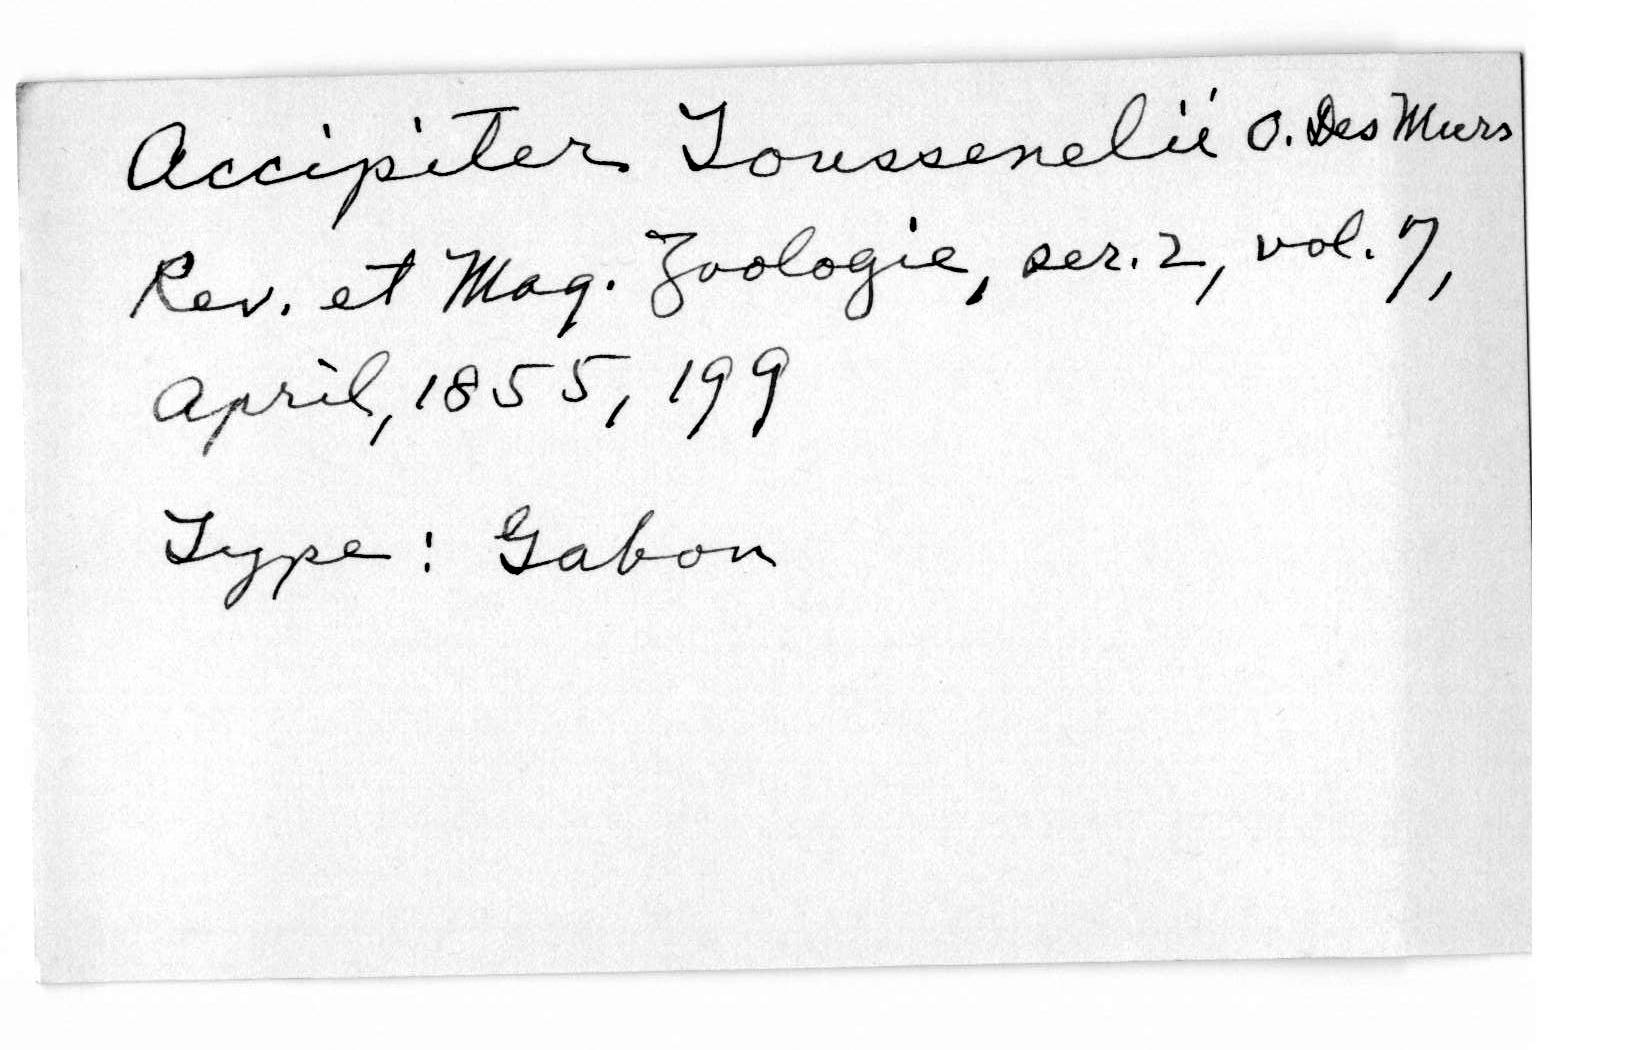 Accipiter Toussenelii O. Des Murs
Rev. et Mag. Zoologie, ser. 2, vol. 7,
April, 1855, 199
Type: Gabon